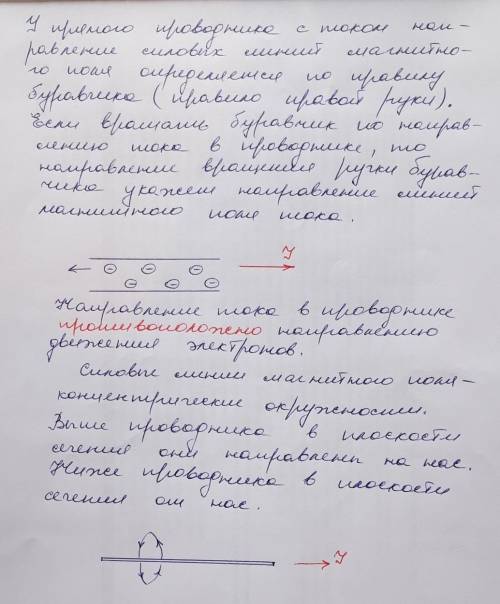 У прямого проводника с током нап-
равление силовых линий магнитно-
го поля определяется по правилу
буравчика (правило правой руки).
Если вращать буравчик по направ-
лению тока в проводнике, то
направление вращения ручки бурав-
чика укажет направление линий
магнитного поля тока.
I
Направление тока в проводнике
противоположно направлению
движения электронов.
Силовые линии магнитного поля -
концентрические окружности.
Выше проводника в плоскости
сечения они направлены на нас.
Ниже проводника в плоскости
сечения от нас.
I